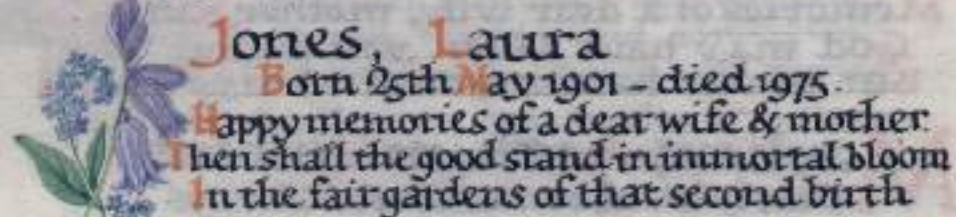 Jones, Laura
Born 25th May 1901 - died 1975.
Happy memories of a dear wife & mother.
Then shall the good stand in immortal bloom
In the fair gardens of that second birth